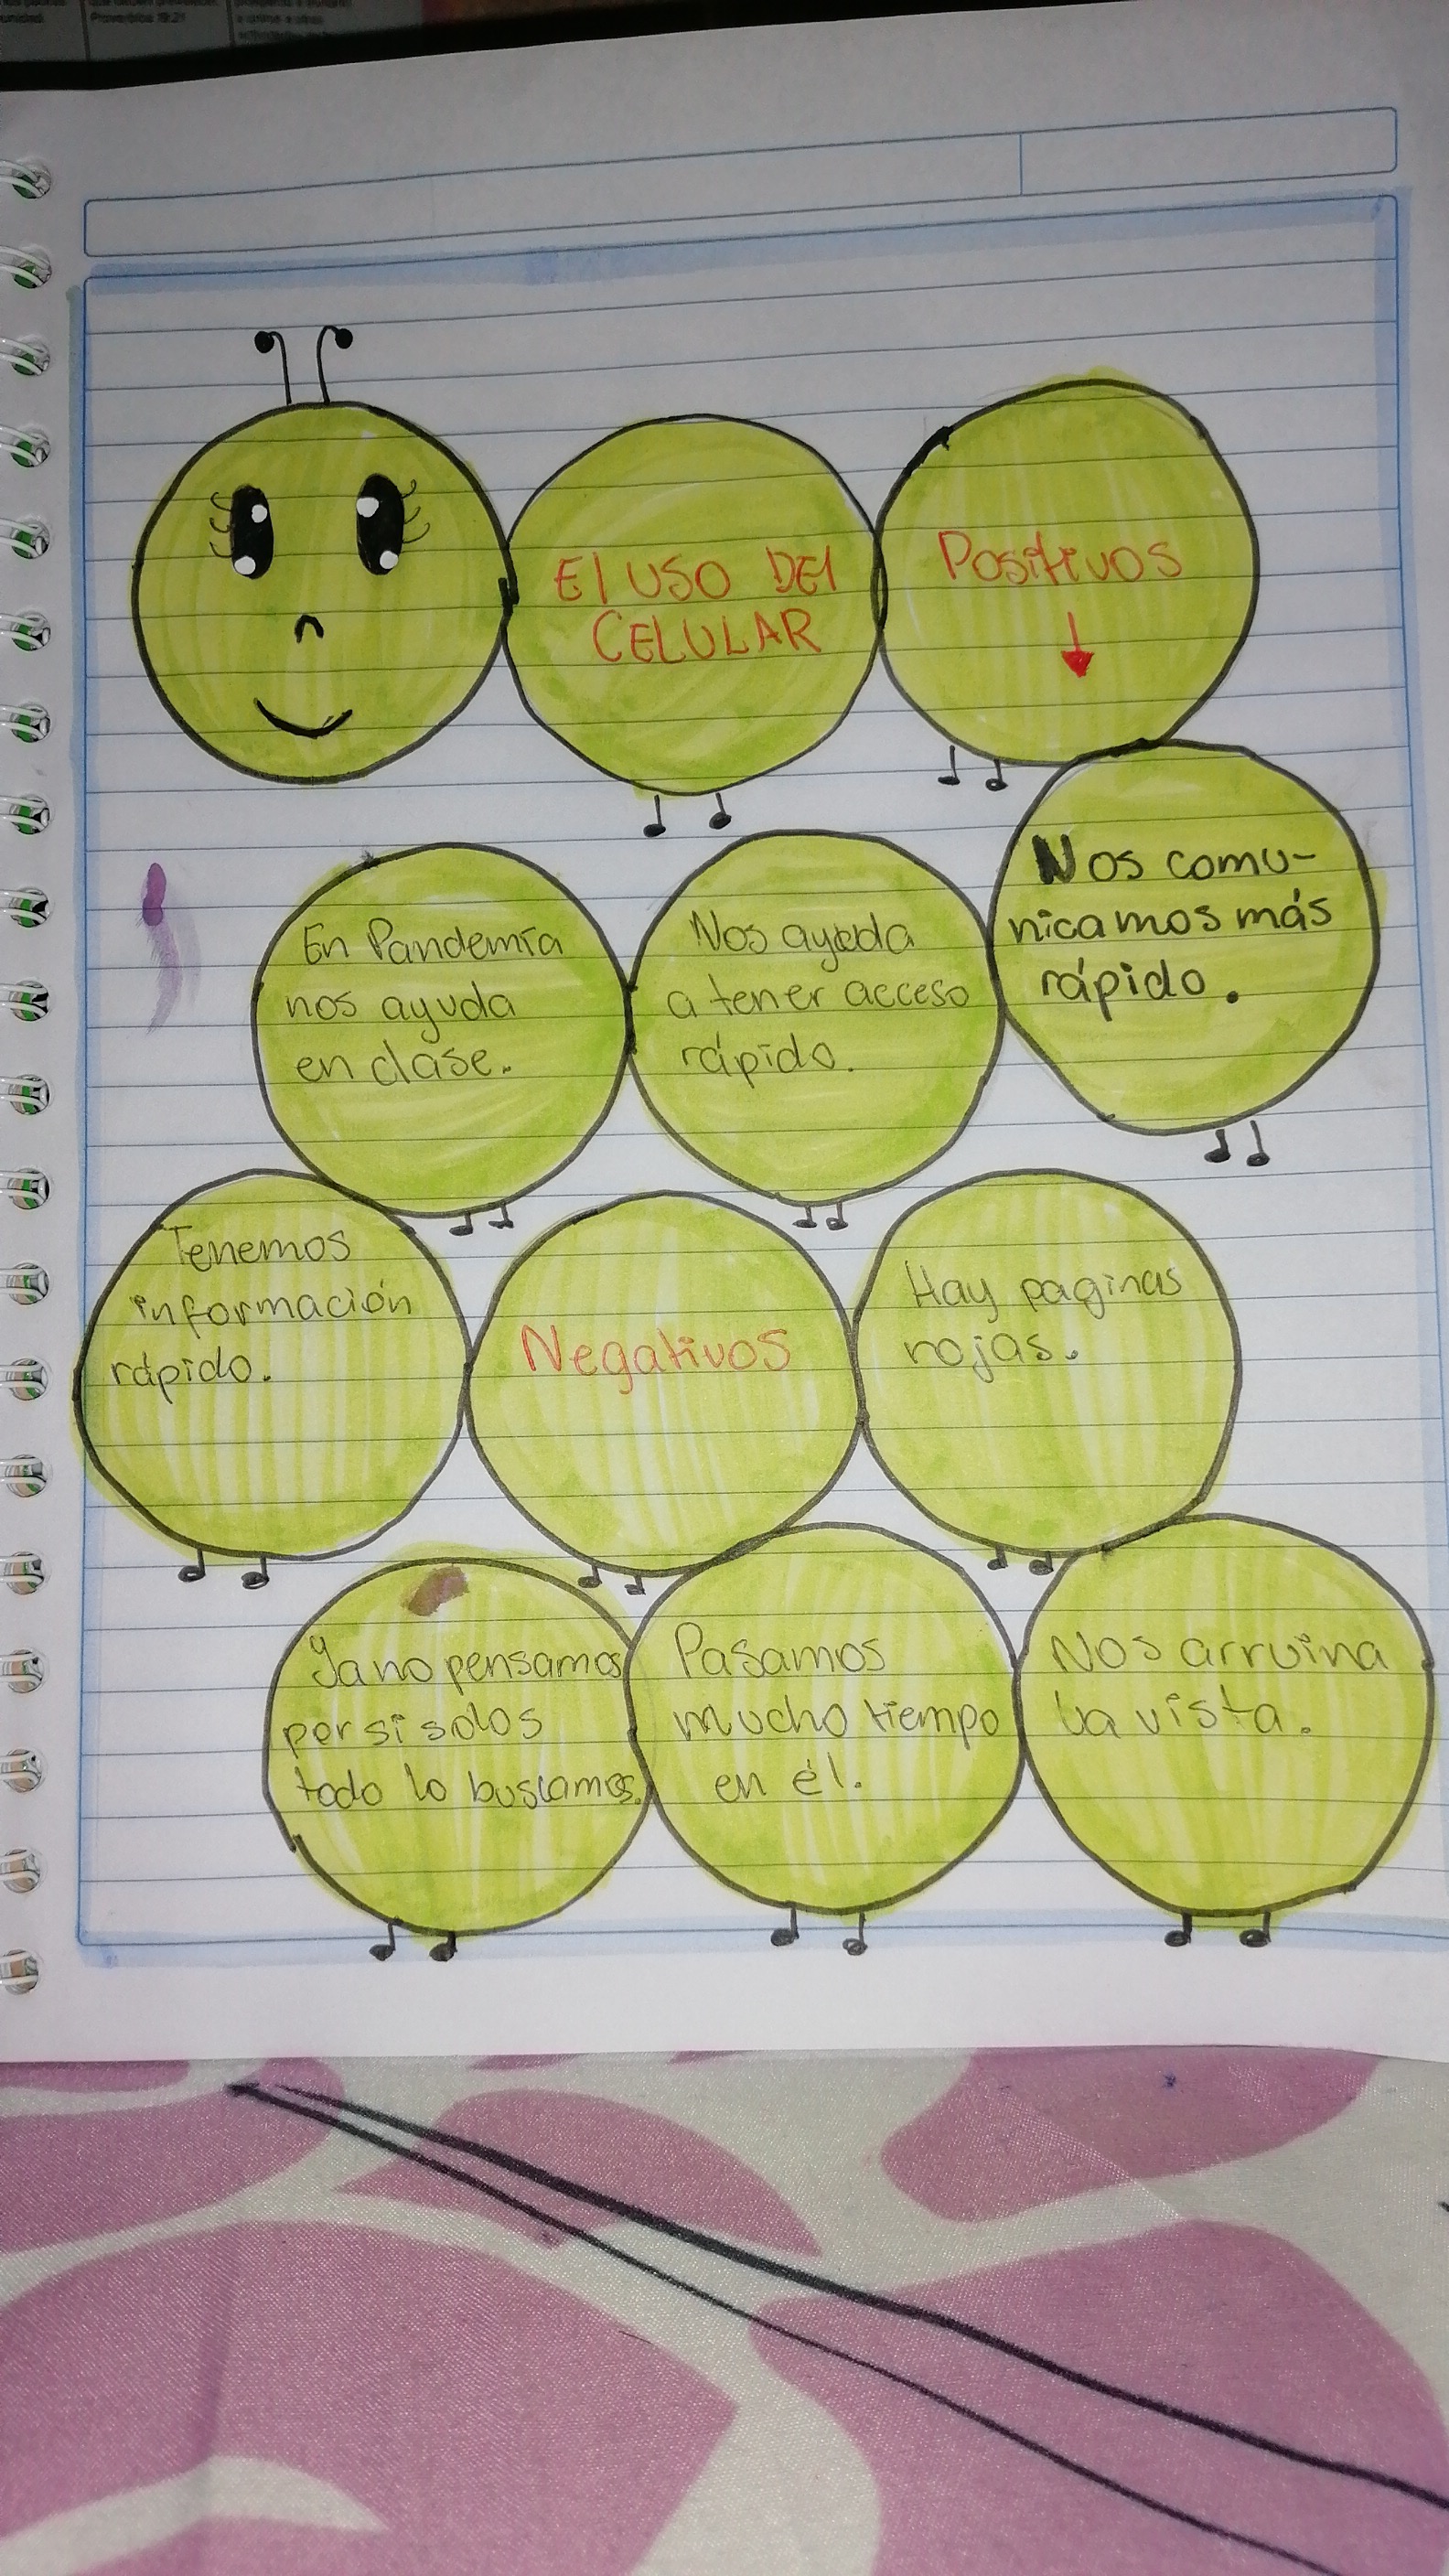 Proverbios 19:21
El USO DEl
CELULAR
Positivos
Nos comu-
nicamos más
rápido.
Nos ayuda
a tener acceso
rápido.
En Pandemía
nos ayuda
en clase.
Tenemos
información
rápido.
Negativos
Hay paginas
rojas.
Nos arruina
la vista.
Pasamos
mucho tiempo
en él.
Ya no pensamos
por si solos
todo lo buscamos.